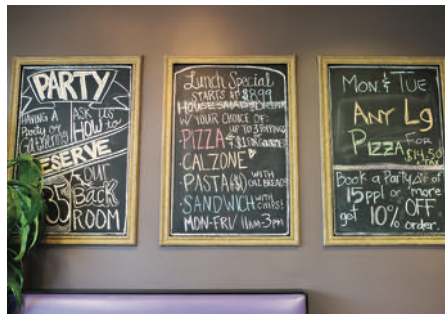 PARTY
HAVING A
Party or
Gathering
ASK us
HOW to
RESERVE
35
our
BACK
ROOM
Lunch Special
STARTS AT $8.99
HOUSE SALAD
W/ YOUR CHOICE OF:
PIZZA UP TO 3 TOPPING
CALZONE
PASTA WITH
BREAD
SANDWICH WITH
CHIPS!
MON-FRI 11AM-3PM
MON. & TUE.
ANY Lg
PIZZA FOR
$14.50
+ TAX
Book a Party of
15 ppl or more
get 10% OFF
order.